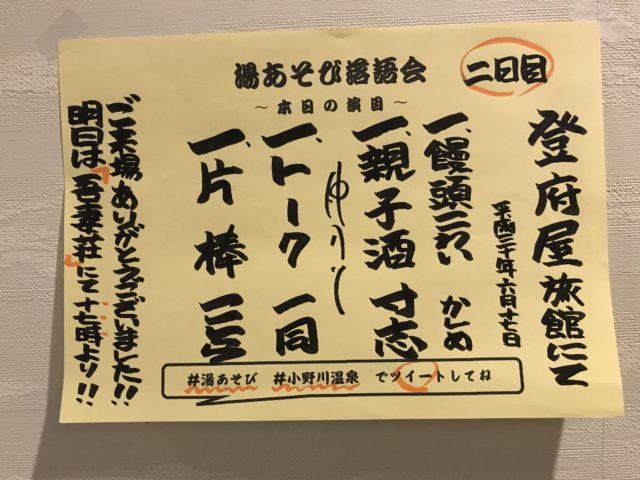 湯あそび落語会
二日目
～本日の演目～
登府屋旅館にて
平成三十年六月十七日
一、饅頭こわい かしめ
一、親子酒 寸志
仲入り
一、トーク 一同
一、片棒
ご来場ありがとうございました!!
明日は「吾妻荘」にて十七時より!!
#湯あそび #小野川温泉 でツイートしてね